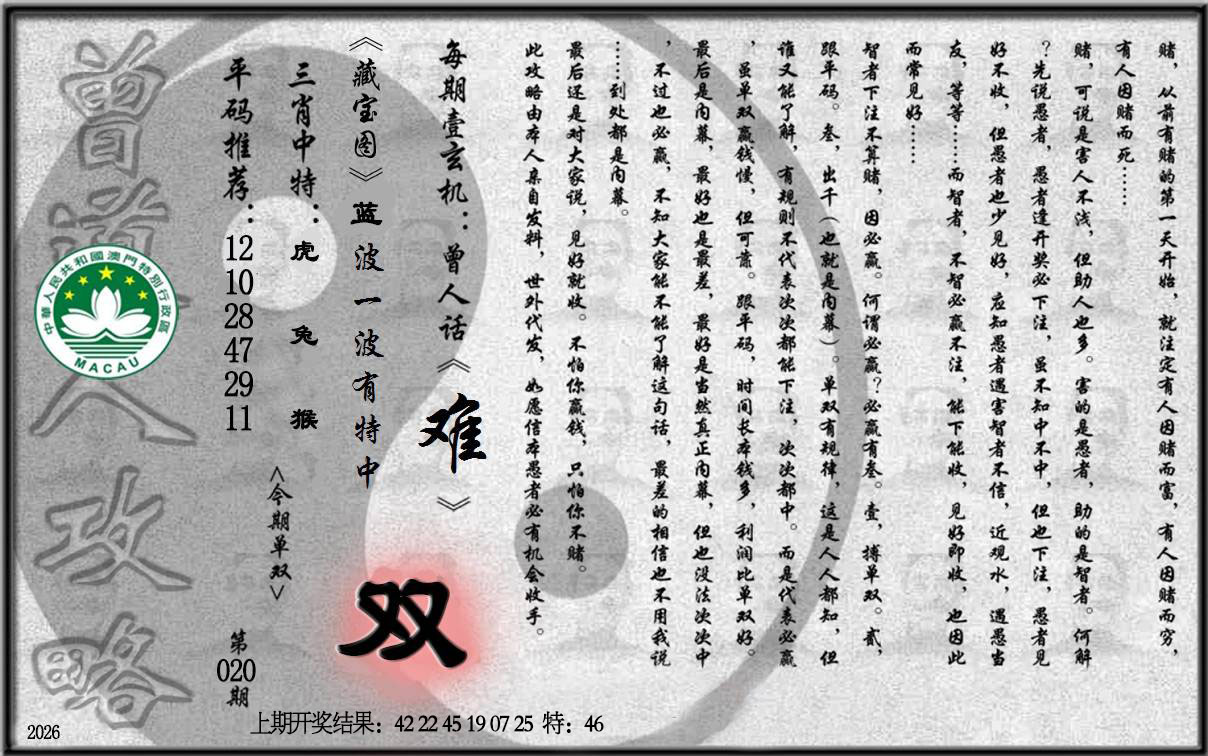 赌，从前有赌的第一天开始，就注定有人因赌而富，有人因赌而穷，
有人因赌而死……
赌，可说是害人不浅，但助人也多。害的是愚者，助的是智者。何解
？先说愚者，愚者逢开奖必下注，虽不知中不中，但也下注，愚者见
好不收，但愚者也少见好，应知愚者遇害智者不信，近观水，遇愚当
友，等等……而智者，不智必赢不注，能下能收，见好即收，也因此
而常见好……
智者下注不算赌，因必赢。何谓必赢？必赢有叁。壹，搏单双。贰，
跟平码。叁，出千（也就是内幕）。单双有规律，这是人人都知，但
谁又能了解，有规则不代表次次都能下注，次次都中。而是代表必赢
，虽单双赢钱慢，但可靠。跟平码，时间长本钱多，利润比单双好。
最后是内幕，最好也是最差，最好是当然真正内幕，但也没法次次中
，不过也必赢，不知大家能不能了解这句话，最差的相信也不用我说
……到处都是内幕。
最后还是对大家说，见好就收。不怕你赢钱，只怕你不赌。
此攻略由本人亲自发料，世外代发，如愿信本愚者必有机会收手。
每期壹玄机：曾人话《难》
《藏宝图》蓝波一波有特中
双
三肖中特：虎 兔 猴
<今期单双>
平码推荐：12 10 28 47 29 11
第020期
曾道人攻略
中華人民共和國澳門特別行政區
MACAU
上期开奖结果：42 22 45 19 07 25 特：46
2026